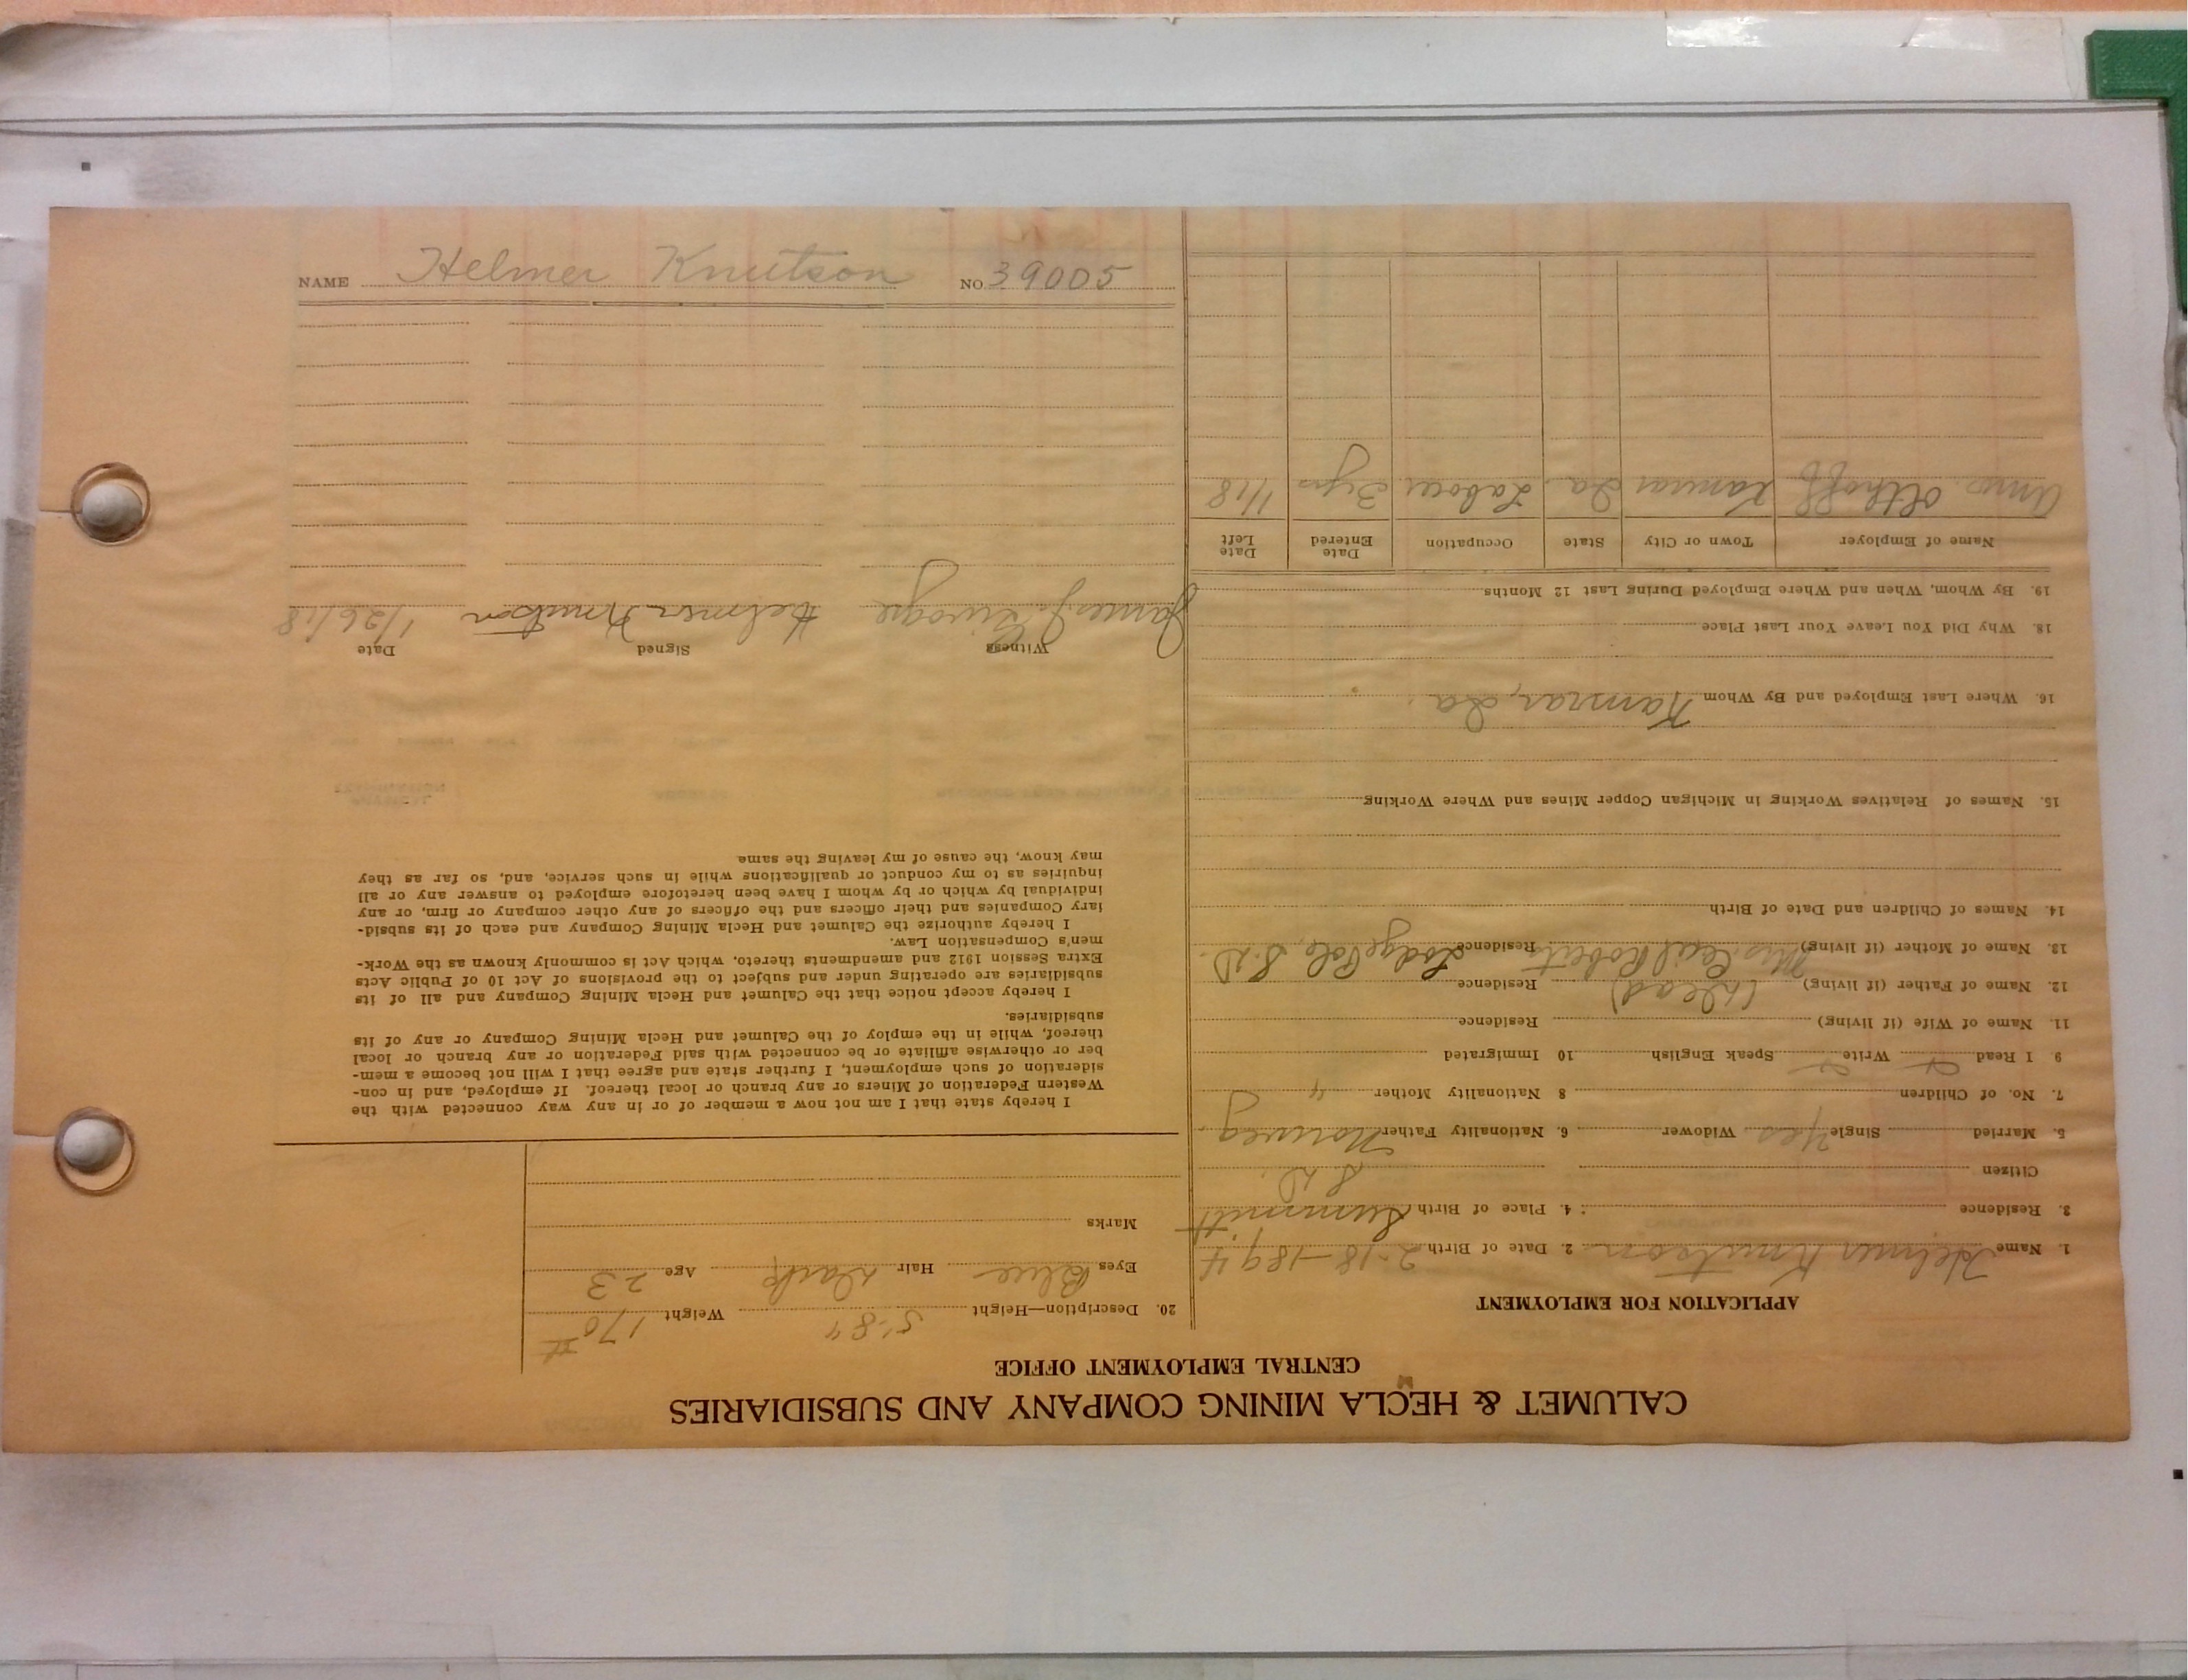 CALUMET & HECLA MINING COMPANY AND SUBSIDIARIES
CENTRAL EMPLOYMENT OFFICE
APPLICATION FOR EMPLOYMENT
1. Name Helmer Knutson 2. Date of Birth 2-18-1894
3. Residence 4. Place of Birth Summitt
S.D.
Citizen
5. Married Single Yes Widower 6. Nationality Father Norweg
7. No. of Children 8 Nationality Mother "
9 I Read Write Speak English 10 Immigrated
11. Name of Wife (if living) Residence
12. Name of Father (if living) (Dead) Residence
13. Name of Mother (if living) Mrs. Cecil Roberts Residence Lodge Pole, S.D.
14. Names of Children and Date of Birth
15. Names of Relatives Working in Michigan Copper Mines and Where Working
16. Where Last Employed and By Whom Kamrar, Ia.
18. Why Did You Leave Your Last Place
19. By Whom, When and Where Employed During Last 12 Months
Name of Employer Town or City State Occupation Date Entered Date Left
Olthoff Kamrar Ia. Labour 3 yrs 1/18
20. Description—Height 5'-8" Weight 170 #
Eyes Blue Hair Dark Age 23
Marks
I hereby state that I am not now a member of or in any way connected with the
Western Federation of Miners or any branch or local thereof. If employed, and in con-
sideration of such employment, I further state and agree that I will not become a mem-
ber or otherwise affiliate or be connected with said Federation or any branch or local
thereof, while in the employ of the Calumet and Hecla Mining Company or any of its
subsidiaries.
I hereby accept notice that the Calumet and Hecla Mining Company and all of its
subsidiaries are operating under and subject to the provisions of Act 10 of Public Acts
Extra Session 1912 and amendments thereto, which Act is commonly known as the Work-
men's Compensation Law.
I hereby authorize the Calumet and Hecla Mining Company and each of its subsid-
iary Companies and their officers and the officers of any other company or firm, or any
individual by which or by whom I have been heretofore employed to answer any or all
inquiries as to my conduct or qualifications while in such service, and, so far as they
may know, the cause of my leaving the same.
Witness Signed Date
James J. Helmer Knutson 1/26/18
NAME Helmer Knutson NO. 39005